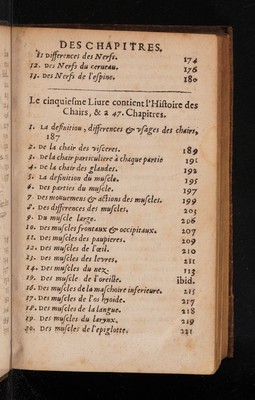 DES CHAPITRES.
11 Differences des Nerfs. 174
12. des Nerfs du cerueau. 176
13. des Nerfs de l'espine. 180
Le cinquiesme Liure contient l'Histoire des
Chairs, & a 47. Chapitres.
1. La definition, differences & vsages des chairs,
187
2. De la chair des visceres. 189
3. De la chair particuliere à chaque partie 191
4. De la chair des glandes. 192
5. La definition du muscle. 195
6. Des parties du muscle. 197
7. Des mouuemens & actions des muscles. 199
8. Des differences des muscles. 203
9. Du muscle large. 206
10. des muscles frontaux & occipitaux. 207
11. des muscles des paupieres. 209
12. des muscles de l'œil. 210
13. des muscles des leures. 211
14. des muscles du nez. 113
15. des muscles de l'oreille. ibid.
16. Des muscles de la maschoire inferieure. 215
17. Des muscles de l'os hyoide. 217
18. Des muscles de la langue. 218
19. Des muscles du larynx. 219
20. Des muscles de l'epiglotte. 221